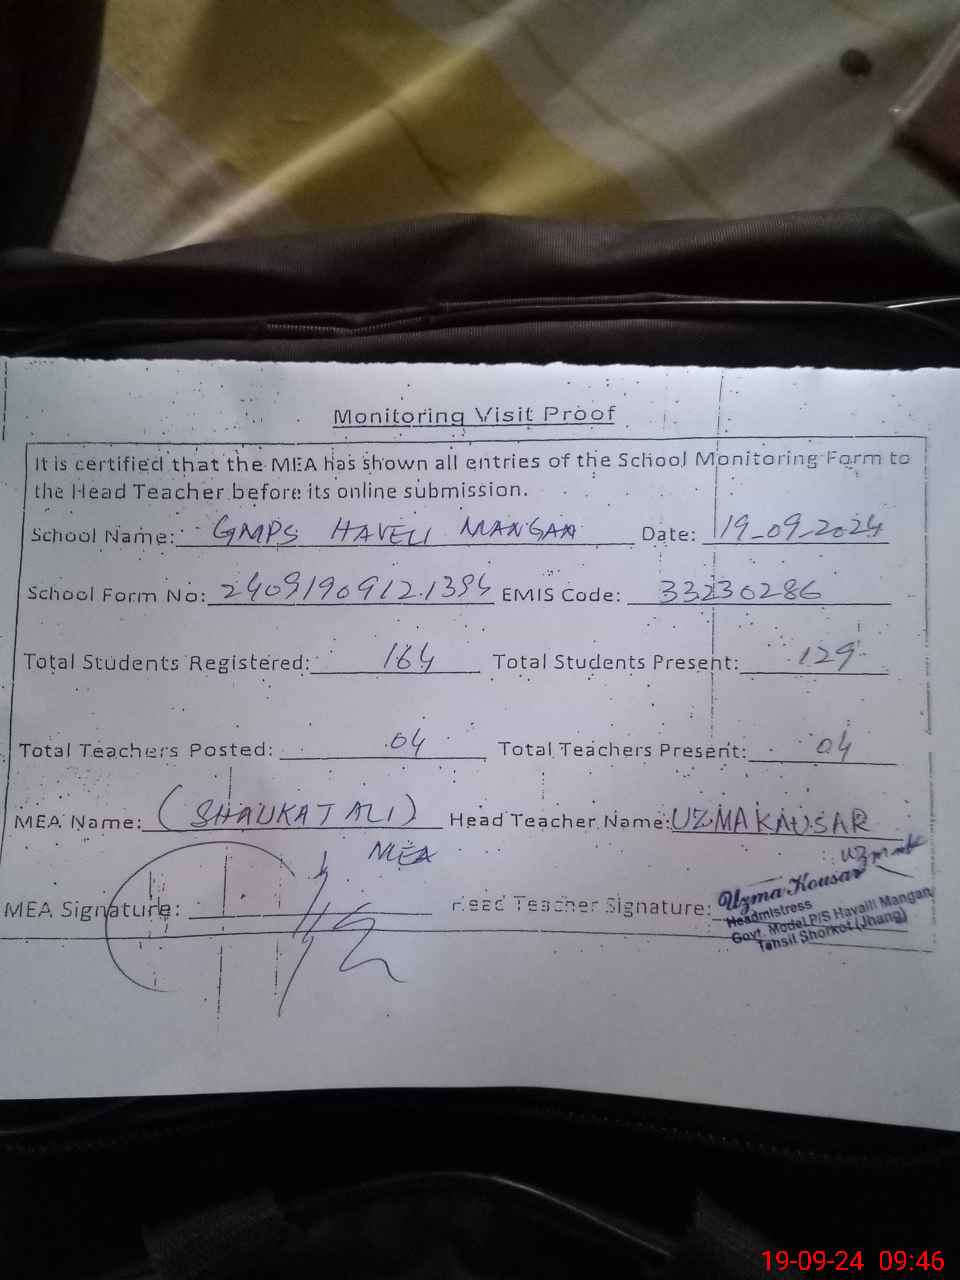 Monitoring Visit Proof
It is certified that the MEA has shown all entries of the School Monitoring Form to
the Head Teacher before its online submission.
School Name: GMPS HAVELI MANGAN Date: 19-09-2024
School Form No: 2409190912.1394 EMIS Code: 33230286
Total Students Registered: 164 Total Students Present: 129
Total Teachers Posted: 04 Total Teachers Present: 04
MEA Name: (SHAUKAT ALI) Head Teacher Name: UZMA KAUSAR
MEA
MEA Signature: Head Teacher Signature:
Uzma Kousar
Headmistress
Govt. Model P/S Havaili Mangan
Tehsil Shorkot (Jhang)
19-09-24 09:46